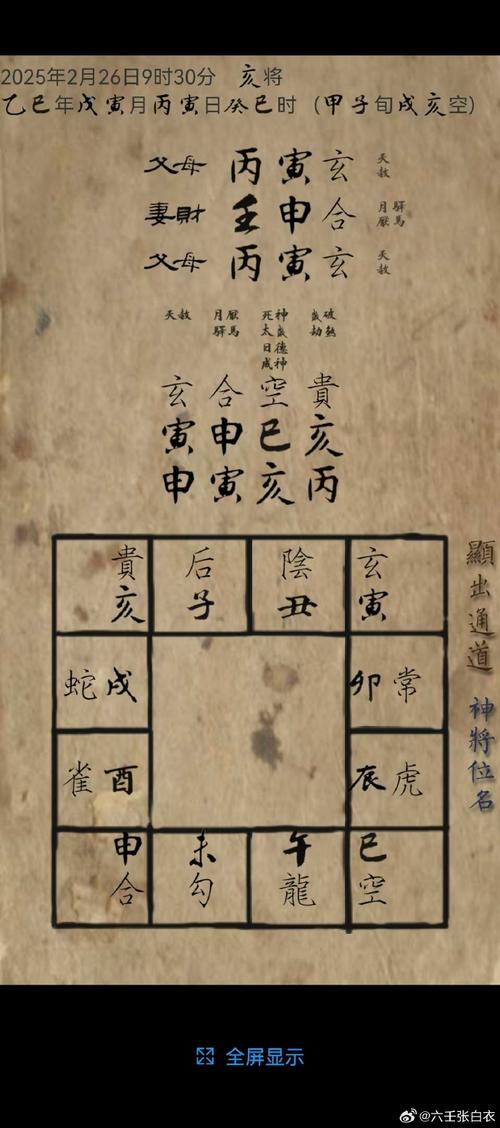 2025年2月26日9时30分 亥将
乙巳年戊寅月丙寅日癸巳时（甲子旬戌亥空）
父母 丙寅玄 天赦
妻財 壬申合 月厭 驛馬
父母 丙寅玄 天赦
天赦 月厭 驛馬 死神 太歲 日德 成神 歲破 劫煞
玄 合 空 貴
寅 申 巳 亥
申 寅 亥 丙
貴 后 陰 玄
亥 子 丑 寅
蛇 戌 卯 常
雀 酉 辰 虎
申 未 午 巳
合 勾 龍 空
顯出通道
神將位名
全屏显示
@六壬张白衣